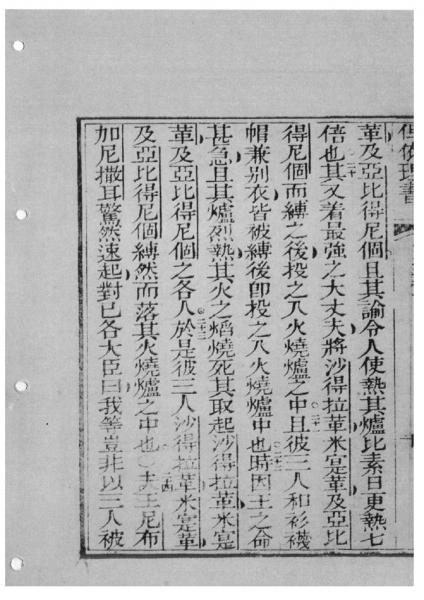 但依理書
革及亞比得尼個且其諭令人使熱其爐比素日更熱七
倍也其又着最強之大丈夫將沙得拉革米寔革及亞比
得尼個而縛之後投之入火燒爐之中且彼三人和衫襪
帽兼別衣皆被縛後卽投之入火燒爐中也時因王之命
甚急且其爐烈熱其火之熖燒死其取起沙得拉革米寔
革及亞比得尼個之各人於是彼三人沙得拉革米寔革
及亞比得尼個縛然而落其火燒爐之中也夫王尼布
加尼撒耳驚然速起對已各大臣曰我等豈非以三人被